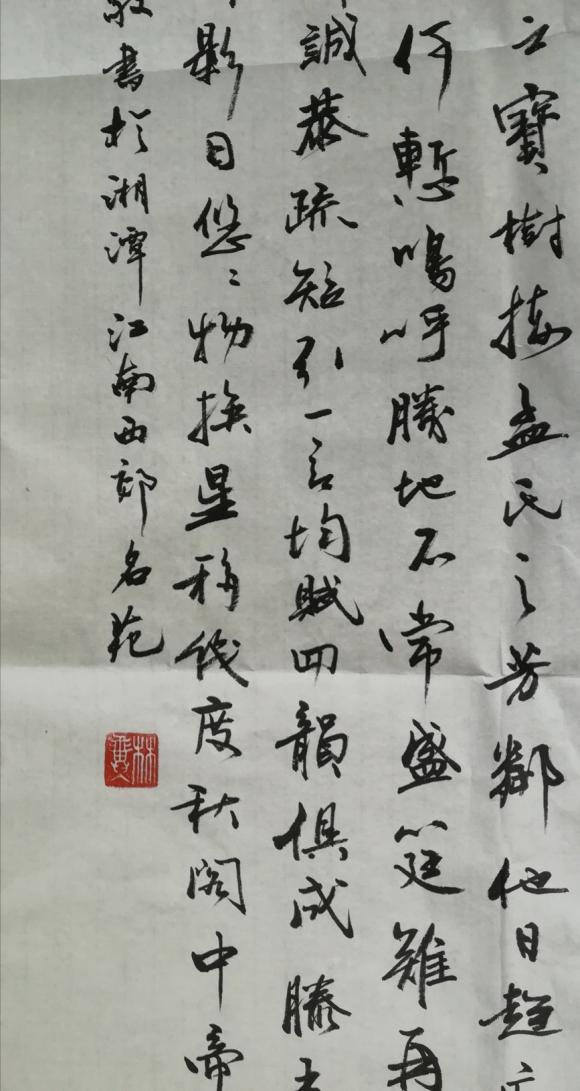 之寶樹接孟氏之芳鄰他日趨
何慙嗚呼勝地不常盛筵難再
誠恭疏短引一言均賦四韻俱成滕王
影日悠〻物換星移幾度秋閣中帝
敬書於湘潭江南西郊名苑
林